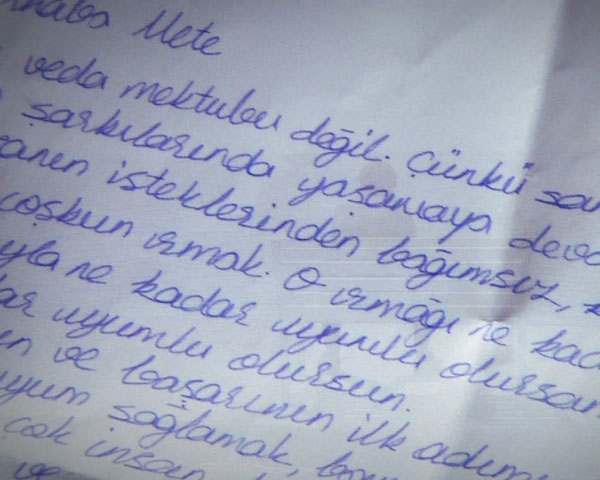 Mete
veda mektubu değil. Çünkü
şarkılarında yaşamaya
isteklerinden bağımsız,
coşkun ırmak. O ırmağı ne
ne kadar uyumlu olursan
uyumlu olursun.
ve başarının ilk
uyum sağlamak,
çok insan
ve